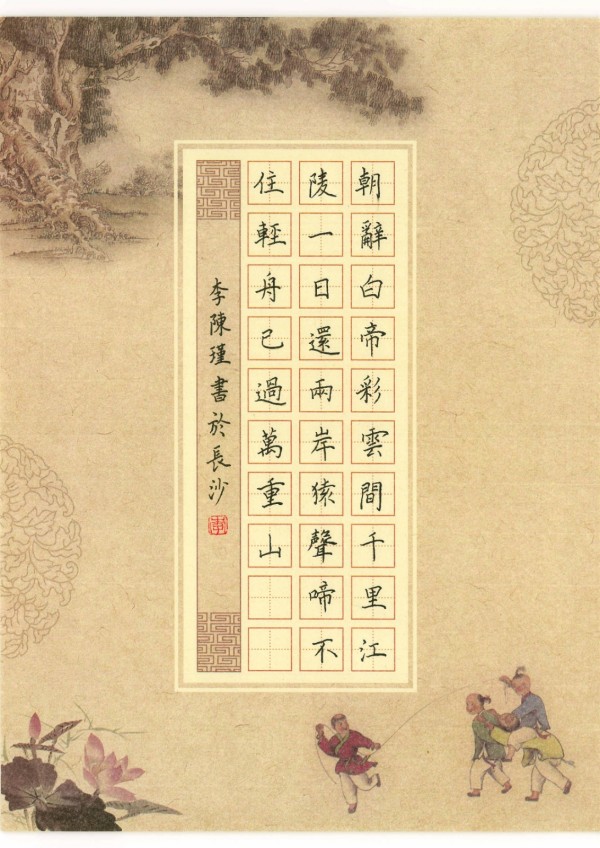 朝辭白帝彩雲間千里江
陵一日還兩岸猿聲啼不
住輕舟已過萬重山
李陳瑾書於長沙